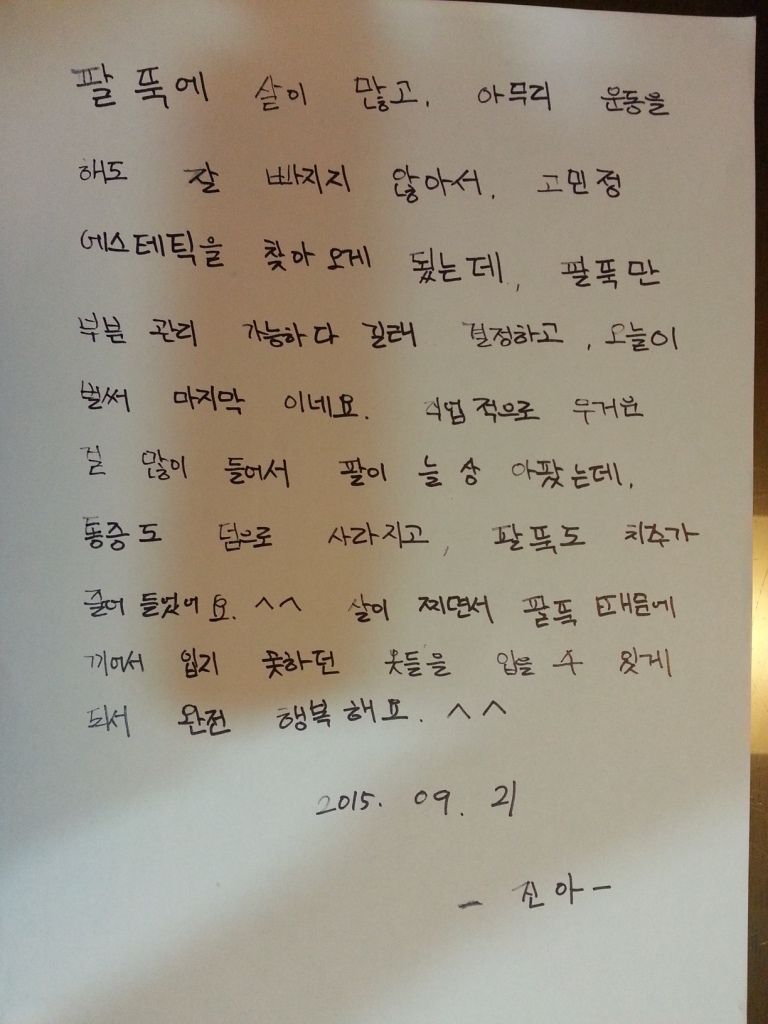 팔뚝에 살이 많고, 아무리 운동을
해도 잘 빠지지 않아서, 고민정
에스테틱을 찾아 오게 됬는데, 팔뚝만
부분 관리 가능하다 길래 결정하고, 오늘이
벌써 마지막 이네요. 직업적으로 무거운
걸 많이 들어서 팔이 늘 상 아팠는데,
통증도 덤으로 사라지고, 팔뚝도 치수가
줄어 들었어요. ^^ 살이 찌면서 팔뚝 때문에
끼어서 입지 못하던 옷들을 입을 수 있게
되서 완전 행복해요. ^^
2015. 09. 21
- 진아 -